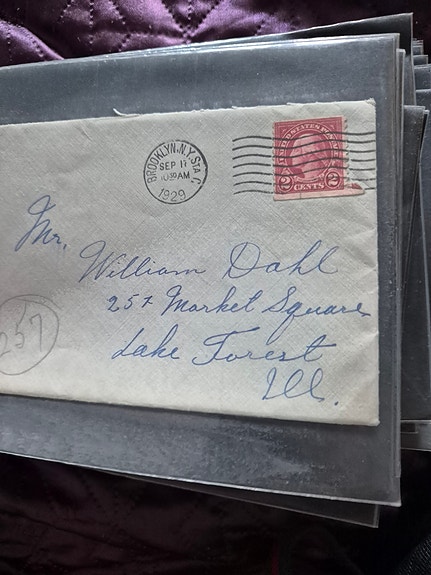 BROOKLYN, N.Y. STA. C.
SEP 11
10:30 AM
1929
UNITED STATES POSTAGE
2 CENTS 2
Mr.
William Dahl
257 Market Square
Lake Forest
Ill.
257